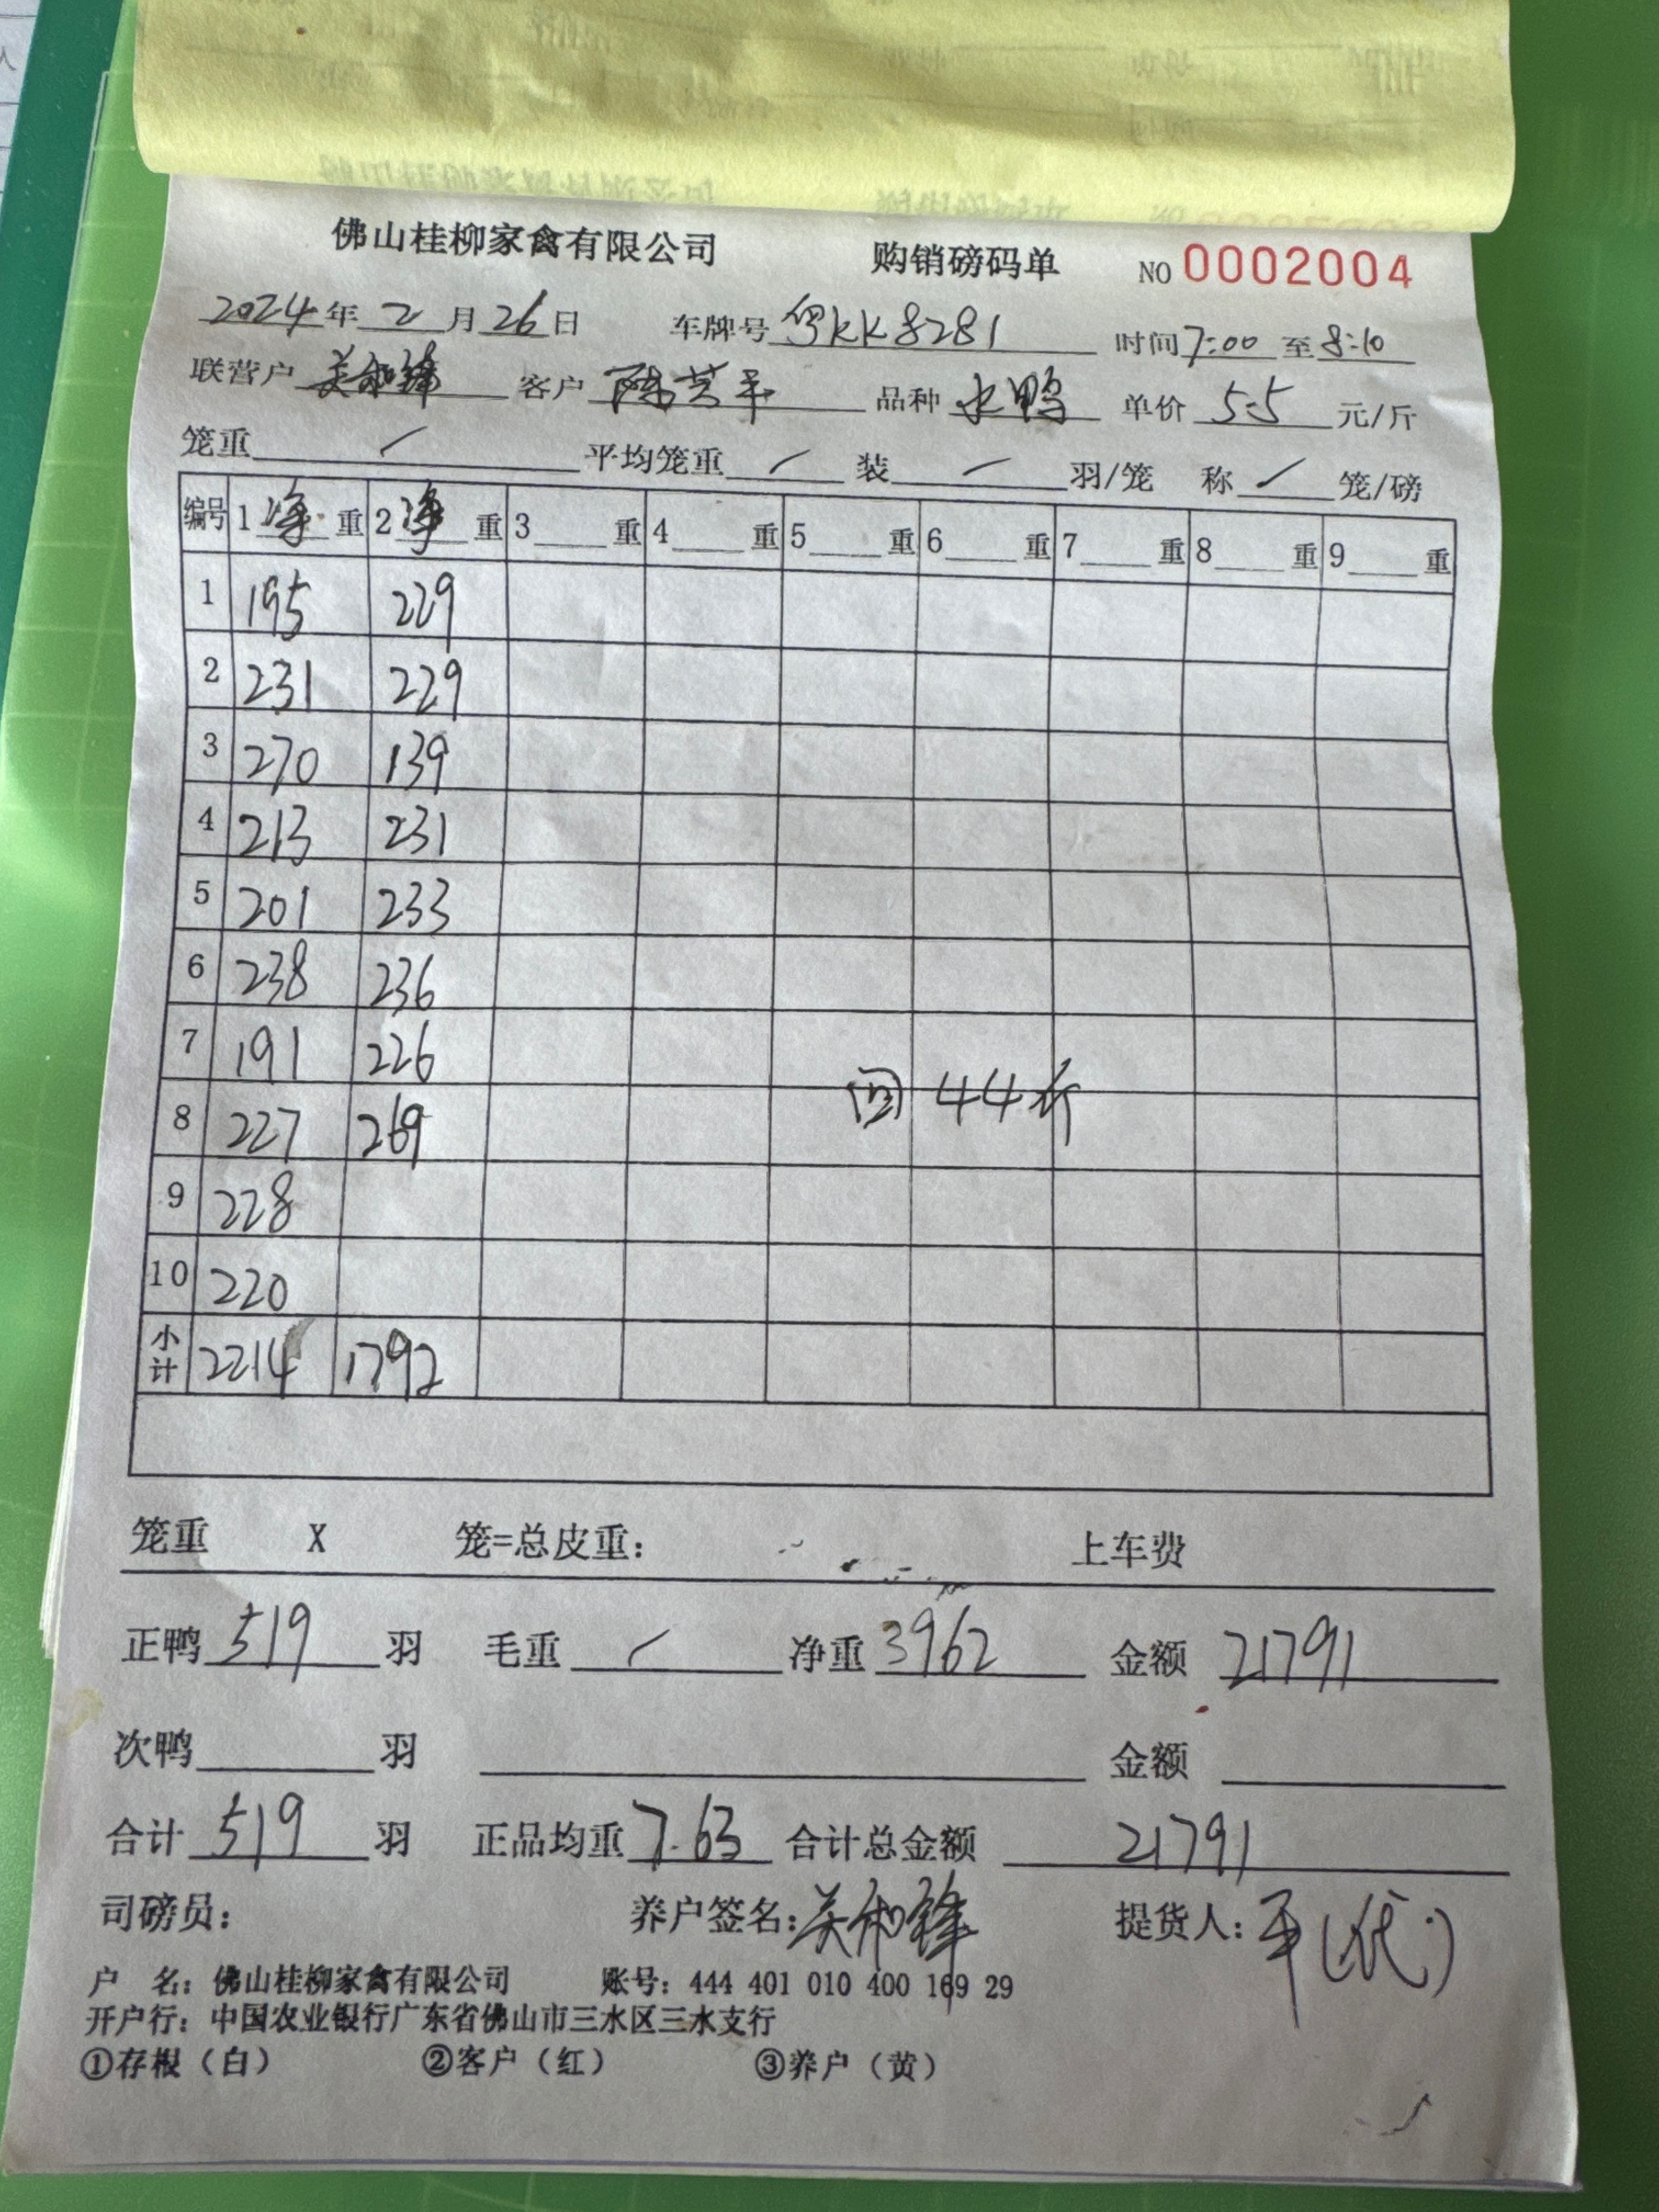 佛山桂柳家禽有限公司 购销磅码单 NO 0002004
2024年2月26日 车牌号 粤KK8281 时间 7:00 至 8:10
联营户 关和锋 客户 陈芸平 品种 水鸭 单价 5.5 元/斤
笼重 / 平均笼重 / 装 / 羽/笼 称 / 笼/磅
编号 1 净 重 2 净 重 3 重 4 重 5 重 6 重 7 重 8 重 9 重
1 195 229
2 231 229
3 270 139
4 213 231
5 201 233
6 238 236
7 191 226
回 44斤
8 227 269
9 228
10 220
小计 2214 1792
笼重 X 笼=总皮重: 上车费
正鸭 519 羽 毛重 / 净重 3962 金额 21791
次鸭 羽 金额
合计 519 羽 正品均重 7.63 合计总金额 21791
司磅员: 养户签名: 关和锋 提货人: 平(代)
户 名: 佛山桂柳家禽有限公司 账号: 444 401 010 400 169 29
开户行: 中国农业银行广东省佛山市三水区三水支行
①存根（白） ②客户（红） ③养户（黄）